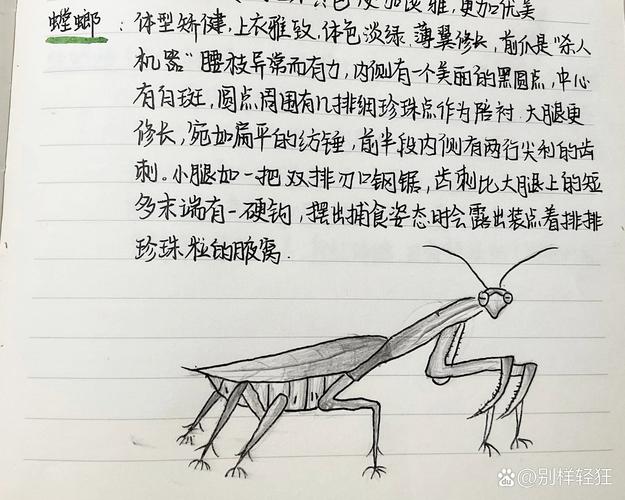 更加淡雅,更加优美
螳螂:体型矫健,上衣雅致,体色淡绿,薄翼修长,前爪是“杀人
机器”腰肢异常而有力,内侧有一个美丽的黑圆点,中心
有白斑,圆点周围有几排细珍珠点作为陪衬.大腿更
修长,宛如扁平的纺锤,前半段内侧有两行尖利的齿
刺。小腿如一把双排刃口钢锯,齿刺比大腿上的短
多末端有一硬钩,摆出捕食姿态时会露出装点着排排
珍珠粒的腋窝.
Bai度@别样轻狂